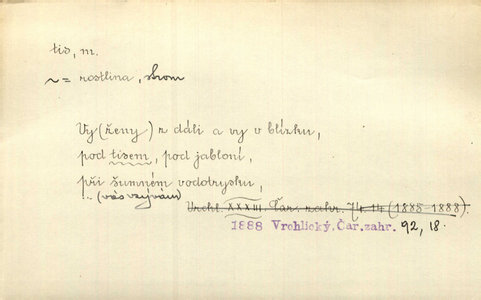 tis, m.
~ = rostlina, strom
Vy (ženy) z dáli a vy v blízku,
pod tisem, pod jabloní,
při šumném vodotrysku,
.. (vás vzývám)
Vrchl. XXXIII. Čar. zahr. 74, 14 (1885-1888).
1888 Vrchlický, Čar. zahr. 92, 18.